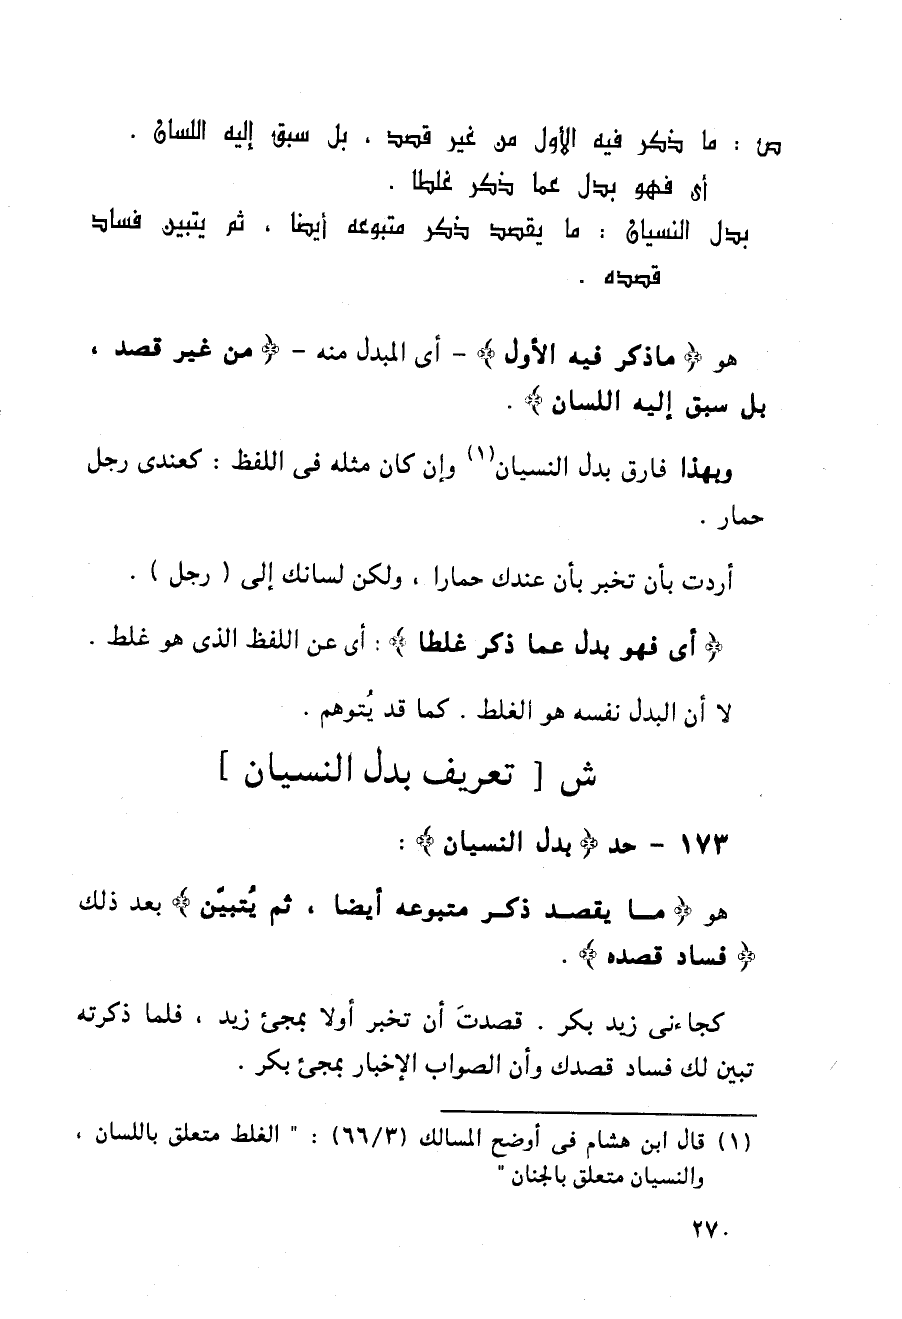 ص : ما ذكر فيه الأول من غير قصد ، بل سبق إليه اللسان .
أى فهو بدل عما ذكر غلطا .
بدل النسيان : ما يقصد ذكر متبوعه أيضا ، ثم يتبين فساد
قصده .
هو ﴿ ماذكر فيه الأول ﴾ – أى المبدل منه – ﴿ من غير قصد ،
بل سبق إليه اللسان ﴾ .
وبهذا فارق بدل النسيان(١) وإن كان مثله فى اللفظ : كعندى رجل
حمار .
أردت بأن تخبر بأن عندك حمارا ، ولكن لسانك إلى ( رجل ) .
﴿ أى فهو بدل عما ذكر غلطا ﴾ : أى عن اللفظ الذى هو غلط .
لا أن البدل نفسه هو الغلط . كما قد يُتوهم .
ش [ تعريف بدل النسيان ]
١٧٣ – حد ﴿ بدل النسيان ﴾ :
هو ﴿ مـا يقصـد ذكـر متبوعه أيضا ، ثم يُتبيّن ﴾ بعد ذلك
﴿ فساد قصده ﴾ .
كجاءنى زيد بكر . قصدتَ أن تخبر أولا بمجئ زيد ، فلما ذكرته
تبين لك فساد قصدك وأن الصواب الإخبار بمجئ بكر .
(١) قال ابن هشام فى أوضح المسالك (٦٦/٣) : " الغلط متعلق باللسان ،
والنسيان متعلق بالجنان "
٢٧٠